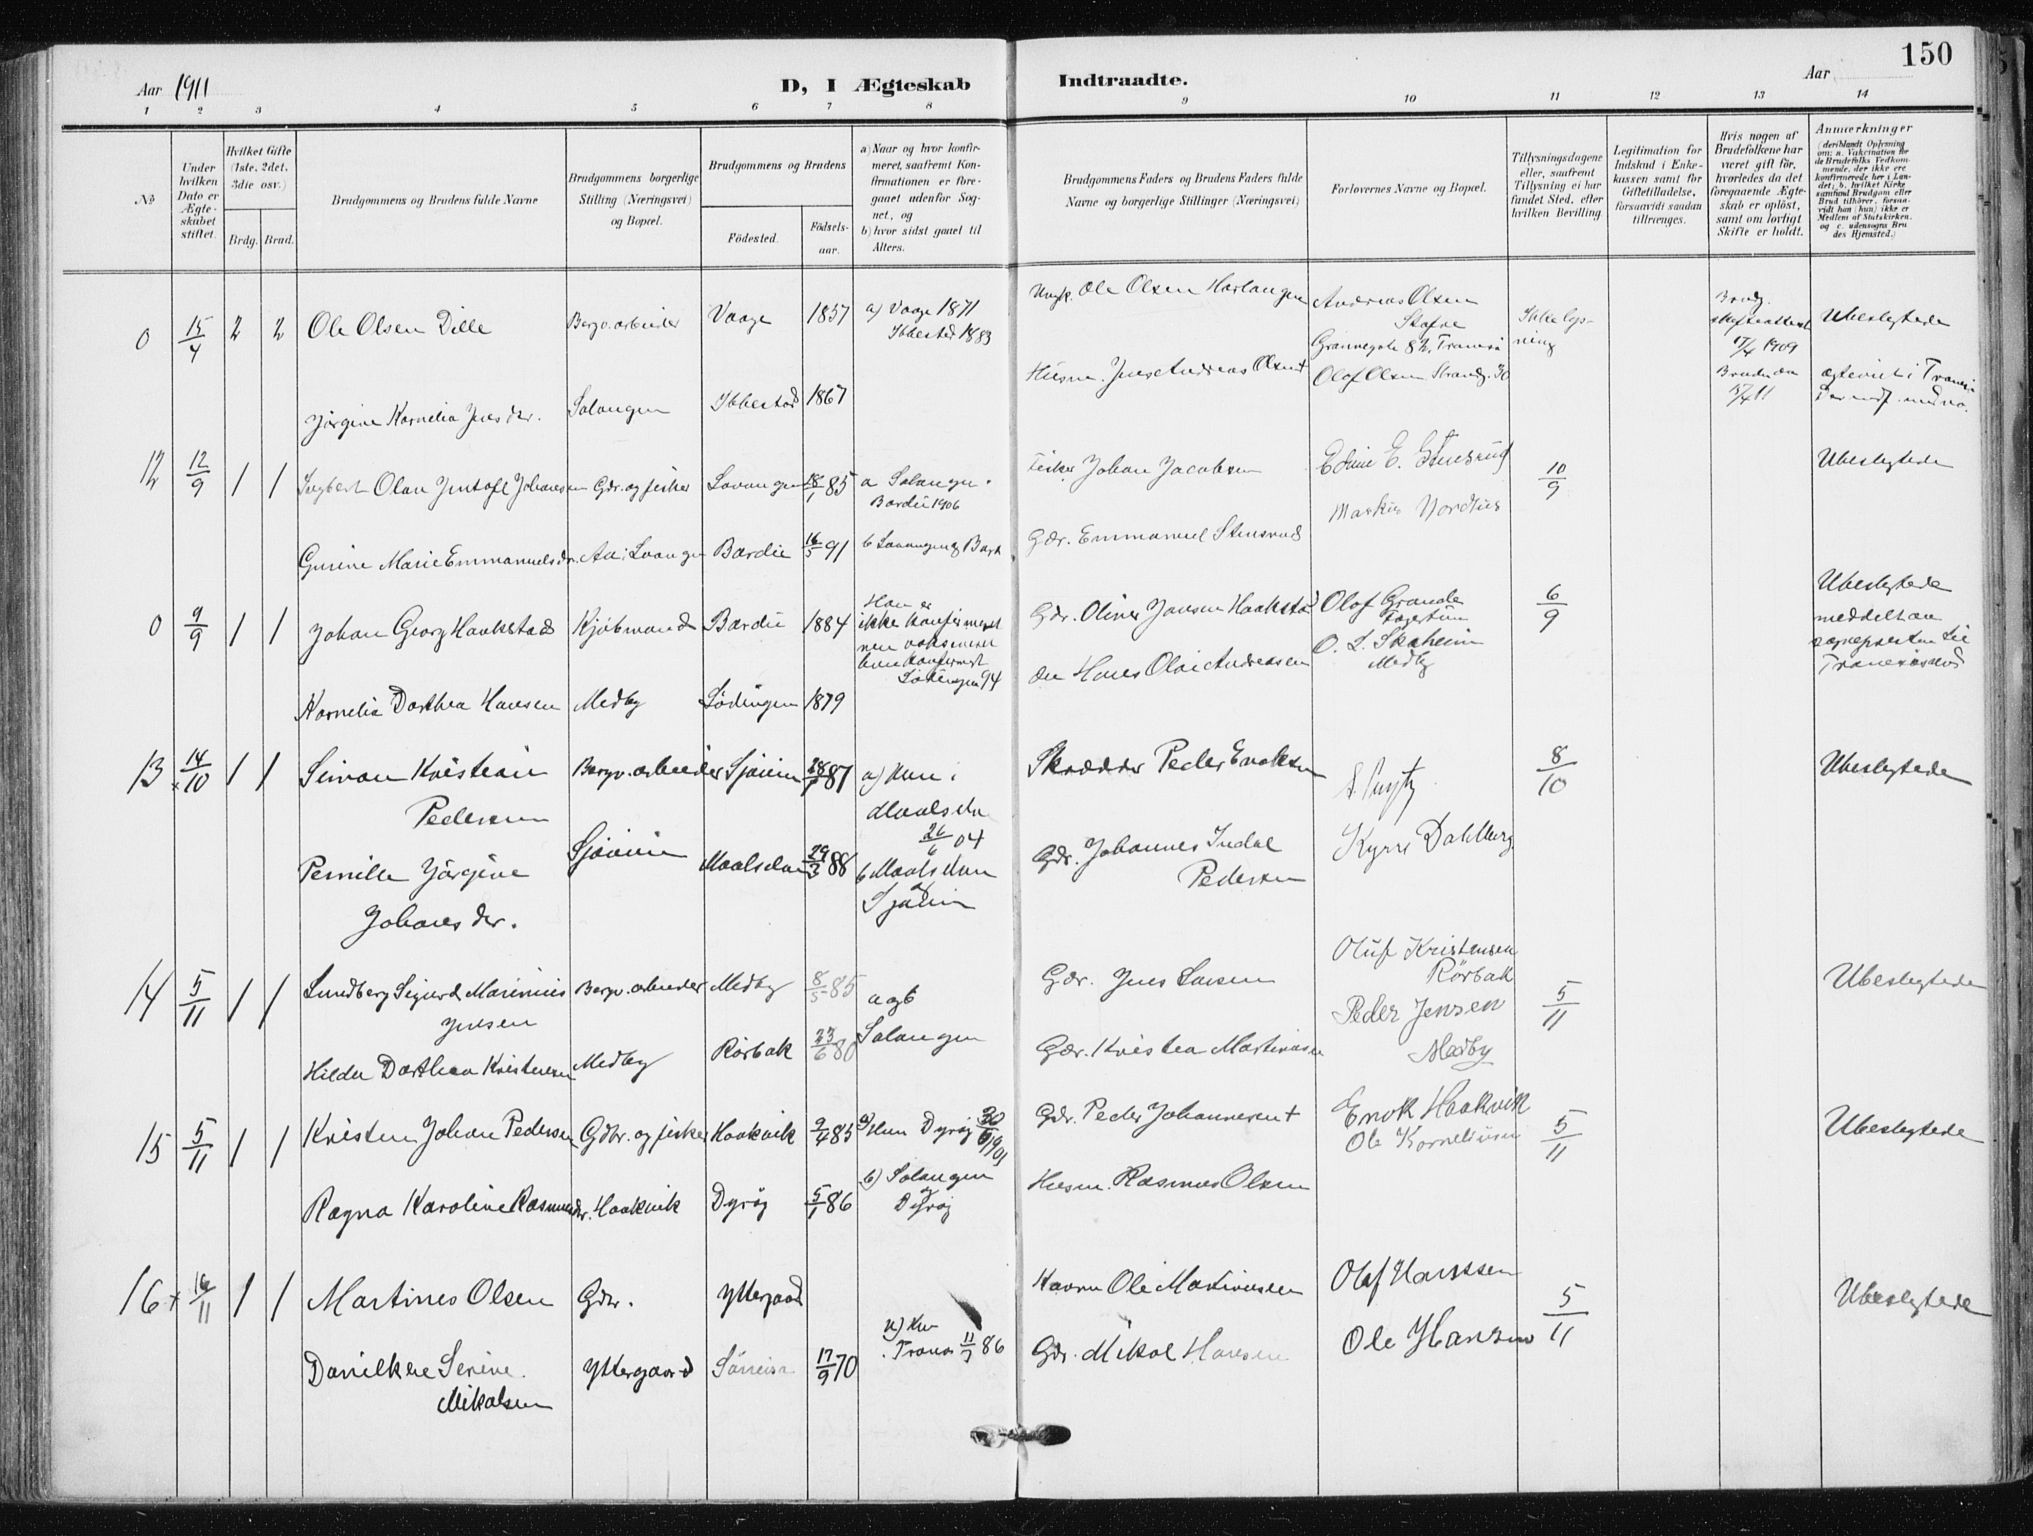 150
Aar 1911
D, I Ægteskab
Indtraadte.
Aar
1 2 3 4 5 6 7 8 9 10 11 12 13 14
No
Under hvilken Dato er Ægteskabet stiftet.
Hvilket Gifte (1ste, 2det, 3die osv.)
Brdg. Brud.
Brudgommens og Brudens fulde Navne
Brudgommens borgerlige Stilling (Næringsvei) og Bopæl.
Brudgommens og Brudens
Fødested.
Fødselsaar.
a) Naar og hvor konfirmeret, saafremt Konfirmationen er foregaaet udenfor Sognet, og
b) hvor sidst gaaet til Alters.
Brudgommens Faders og Brudens Faders fulde Navne og borgerlige Stillinger (Næringsvei)
Forlovernes Navne og Bopæl.
Tillysningsdagene eller, saafremt Tillysning ei har fundet Sted, efter hvilken Bevilling
Legitimation for Indskud i Enkekassen samt for Giftetilladelse, forsaavidt saadan tiltrænges.
Hvis nogen af Brudefolkene har været gift før, hvorledes da det foregaaende Ægteskab er opløst, samt om lovligt Skifte er holdt.
Anmærkninger
(deriblandt Oplysning om: a. Vakcination for de Brudefolks Vedkommende, der ikke ere konfirmerede her i Landet; b. hvilket Kirkesamfund Brudgom eller Brud tilhører, forsaavidt han (hun) ikke er Medlem af Statskirken, og c. udensogns Brudes Hjemsted.)
0 15/4 2 2 Ole Olsen Dille Bergv. arbeider Vaage 1857 a) Vaage 1871
Ibbestad 1883
Ungk. Ole Olsen Andreas Olsen
Grønnegate 82, Tromsø
Ikke lysning
1909
Ubeslegtede
Jørgine Kornelia Jensdr. Salangen Ibbestad 1867
Husm. Jens Andreas Olsen† Olof Olsen Strandg. 30
12 12/9 1 1 Olav Johansen Gdr. og fisker Lavangen 18/1 85 a Salangen.
Bardu 1906
Fisker Johan Jacobsen Edine E. Stensrud 10/9 Ubeslegtede
Markus Nordhus
Gurine Marie Emmanuelsdr. Aa i Lavangen Bardu 16/5 91 b Lavangen og Bardu
Gdr. Emmanuel Stensrud
0 9/9 1 1 Johan Georg Haakstad Kjøbmand Bardu 1884 Han er
ikke konfirmeret
Gdr. Oliver Jansen Haakstad Olof Grande 6/9 Ubeslegtede
O. L. Skaheim
Medby
meddelt av
sognepresten til
Tranøsund
Kornelia Dorthea Hansen Medby Lødingen 1879
Lødingen 94
Hans Olai Andreasen
13 × 14/10 1 1 Simon Kristian
Pedersen
Bergv. arbeider Sjøvein 28/7 87 a) Hun i
Maalselv
26/6 04
Skrædder Peder Enoksen 8/10 Ubeslegtede
Pernille Jørgine
Johansdr.
Sjøvein Maalselven 29/3 88 b Maalselven
og
Sjøvein
Gdr. Johannes Indal
Pedersen
Kyrre Dahlberg
14 5/11 1 1 Lundberg Sigurd Marinius
Jensen
Bergv. arbeider Medby 8/5 85 a og b
Salangen
Gdr. Jens Larsen Oluf Kristensen
Rørbak
Peder Jensen
Medby
5/11 Ubeslegtede
Hilda Dorthea Kristensen Medby Rørbak 23/6 80
Gdr. Kristen Martinusen
15 5/11 1 1 Kristen Johan Pedersen Gdbr. og fisker Haakvik 9/4 85 a) Hun Dyrøy 30/6 1901
Gdr. Peder Johannesen† Enok Haakvik
Ole Korneliusen
5/11 Ubeslegtede
Ragna Karoline Rasmusdr. Haakvik Dyrøy 5/1 86 b) Salangen
og
Dyrøy
Husm. Rasmus Olsen
16 + 16/11 1 1 Martines Olsen Gdbr. Yttergaard
Ole Martinussen Olaf Hanssen 5/11 Ubeslegtede
Danilkke Serine
Mikalsen
Yttergaard Sørreisa 17/9 70 a) Hun
Tranøs 11/7 86
Gdr. Mikal Hansen Ole Hansen